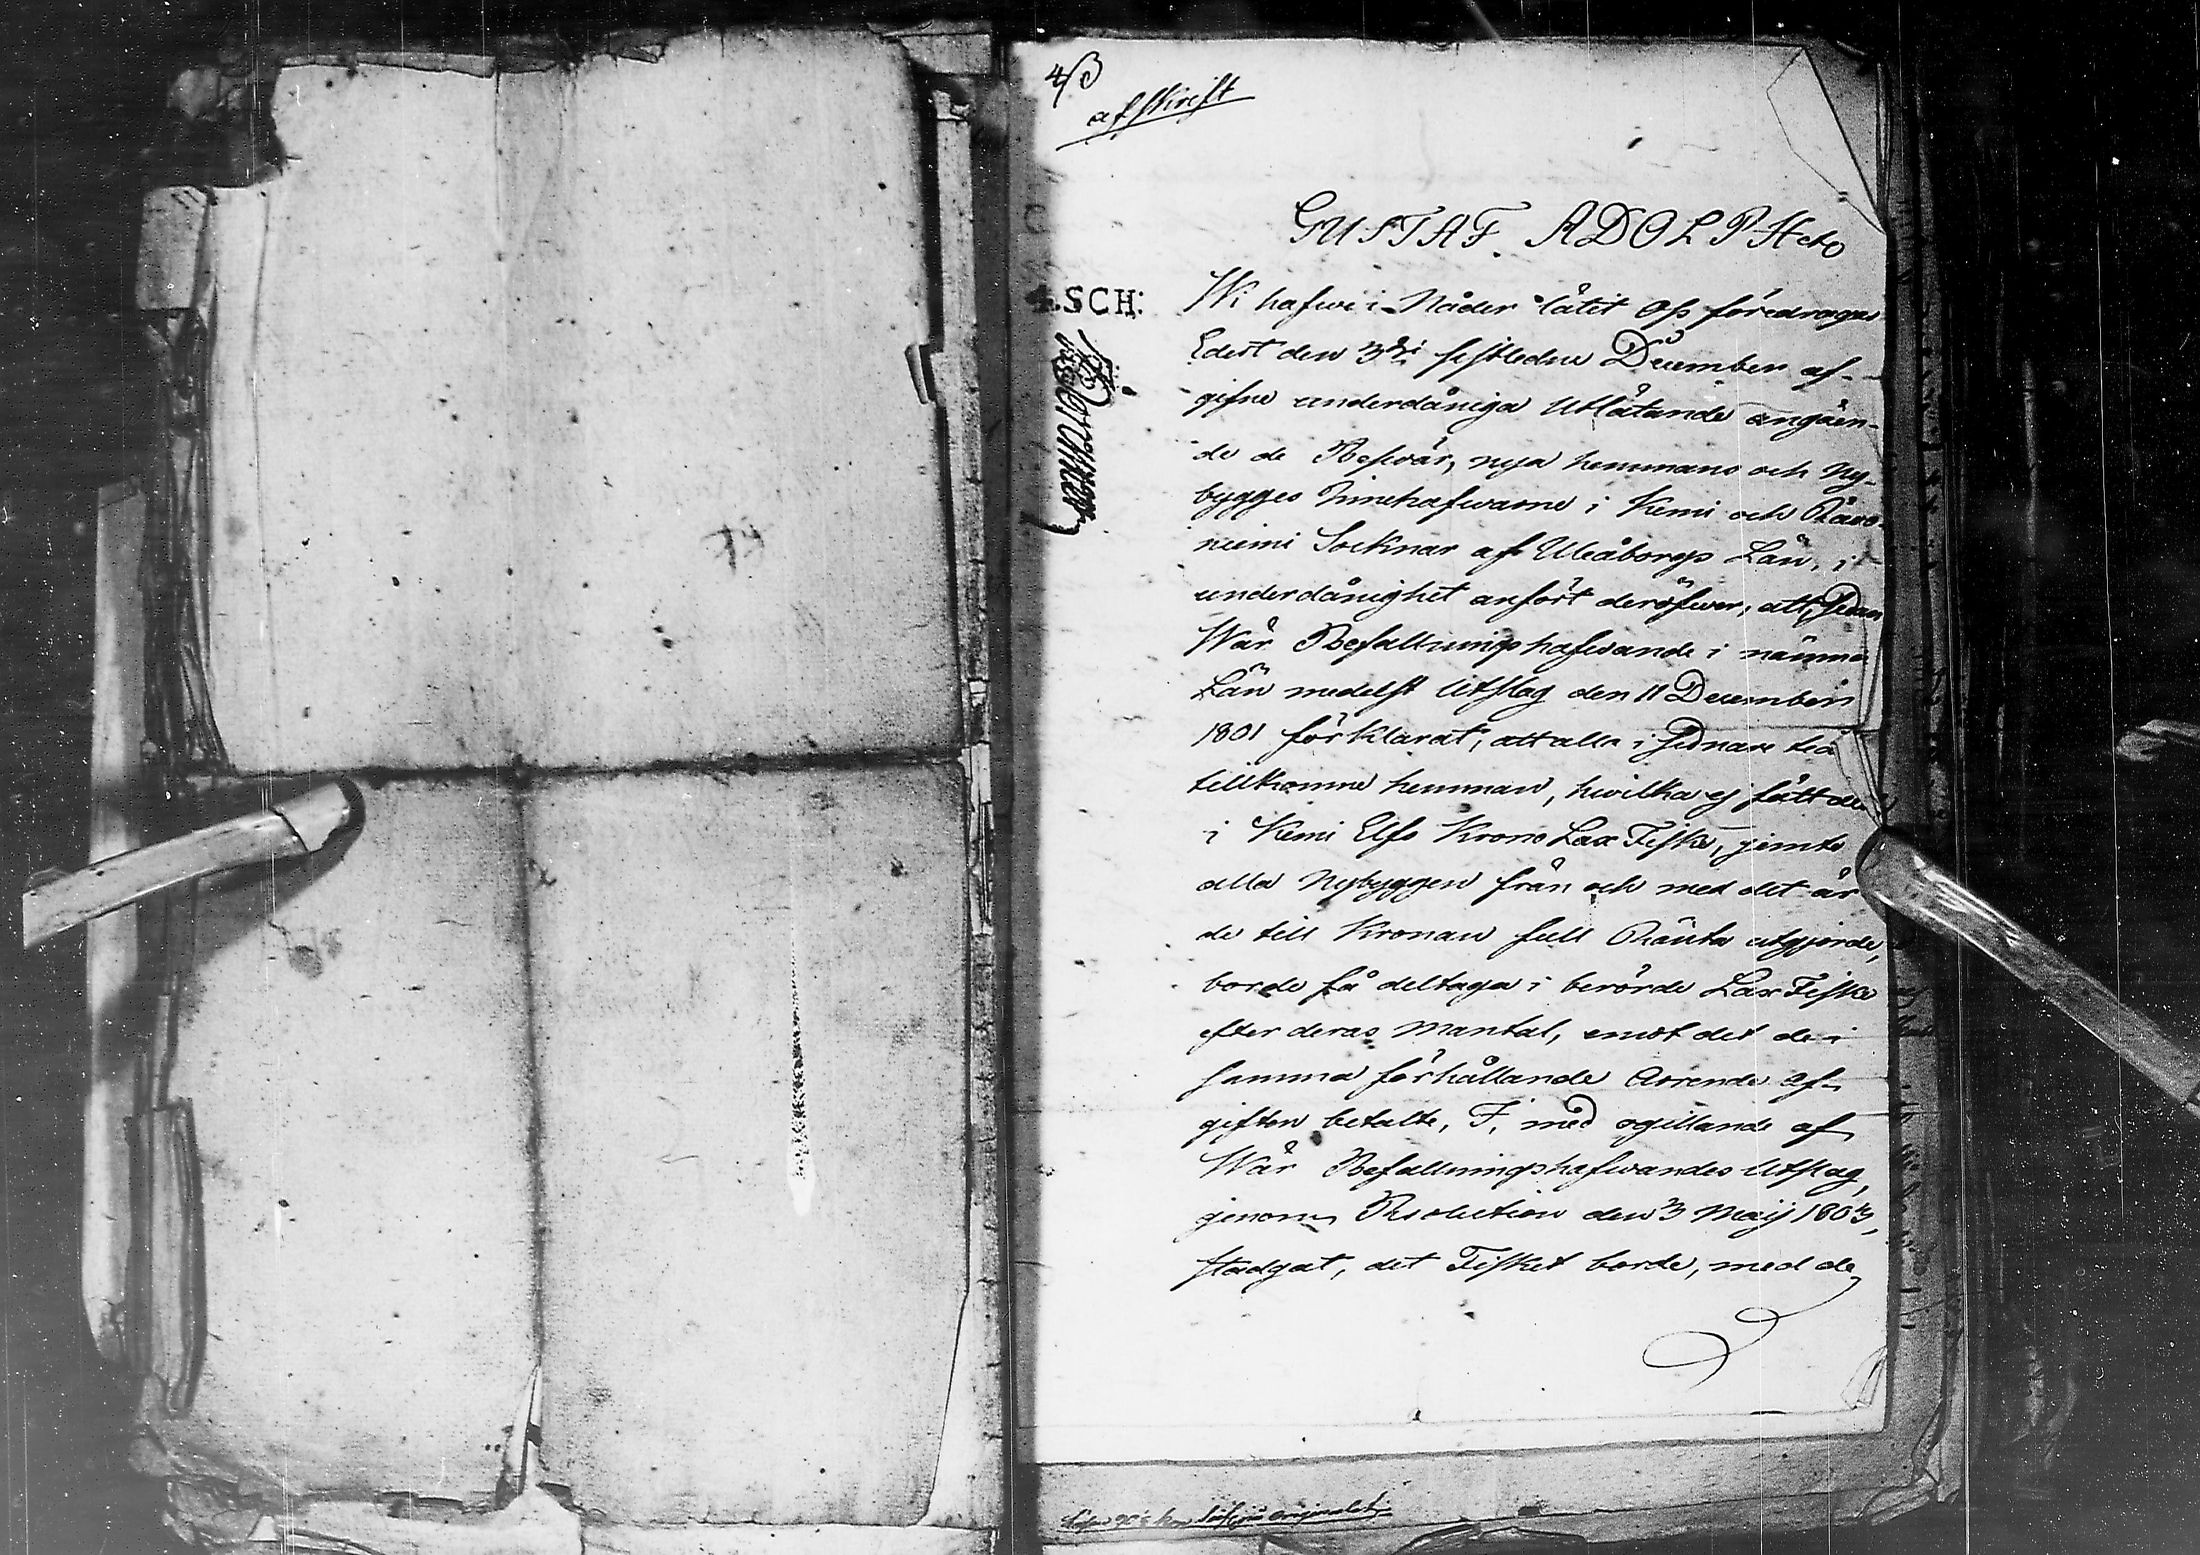 4/3
afskrift
GUSTAF ADOLPH etc
4.SCH:
Wi hafwe i Nåder låtit Oss föredragas
Edert den 3di sistledne December af-
gifne underdåniga Utlåtande angåen-
de de Beswär, nya hemmans och Ny-
bygges Innehafwarne i Kemi och Råva-
niemi Socknar af Uleåborgs Län, i
underdånighet anfört deröfwer, att, sedan
Wår Befallningshafwande i nämnde
Län medelst Utslag den 11 December
1801 förklarat, att alla i sednare tid
tillkomne hemman, hwilka ej fått del
i Kemi Elfs Krono Lax Fiske, jemte
alla Nybyggen från och med det år
de till Kronan full Ränta utgjorde,
borde få deltaga i berörde Lax Fiske
efter deras Mantal, emot det de i
samma förhållande Arrende Af-
giften betalte, I, med ogillande af
Wår Befallningshafwandes Utslag,
genom Resolution den 3 Maij 1803,
stadgat, det Fisket borde, med de
originalet